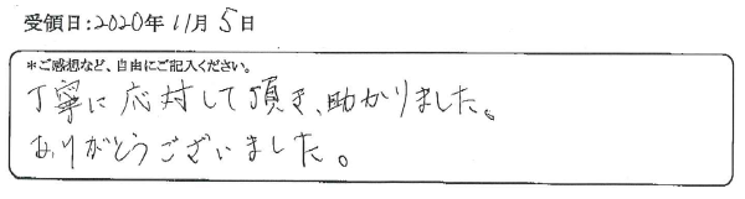 受領日:2020年11月5日
*ご感想など、自由にご記入ください。
丁寧に応対して頂き、助かりました。
ありがとうございました。